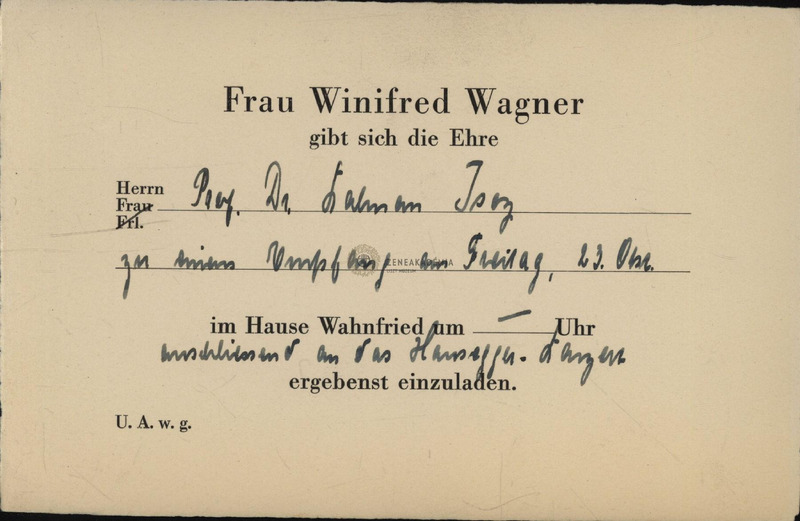 Frau Winifred Wagner
gibt sich die Ehre
Herrn
Frau Prof. Dr. Kalman Isoz
Frl.
zu einem Empfang am Freitag, 23. Okt.
ZENEAKADÉMIA
LISZT MÚZEUM
im Hause Wahnfried um — Uhr
anschliessend an das Hausegger-Konzert
ergebenst einzuladen.
U. A. w. g.